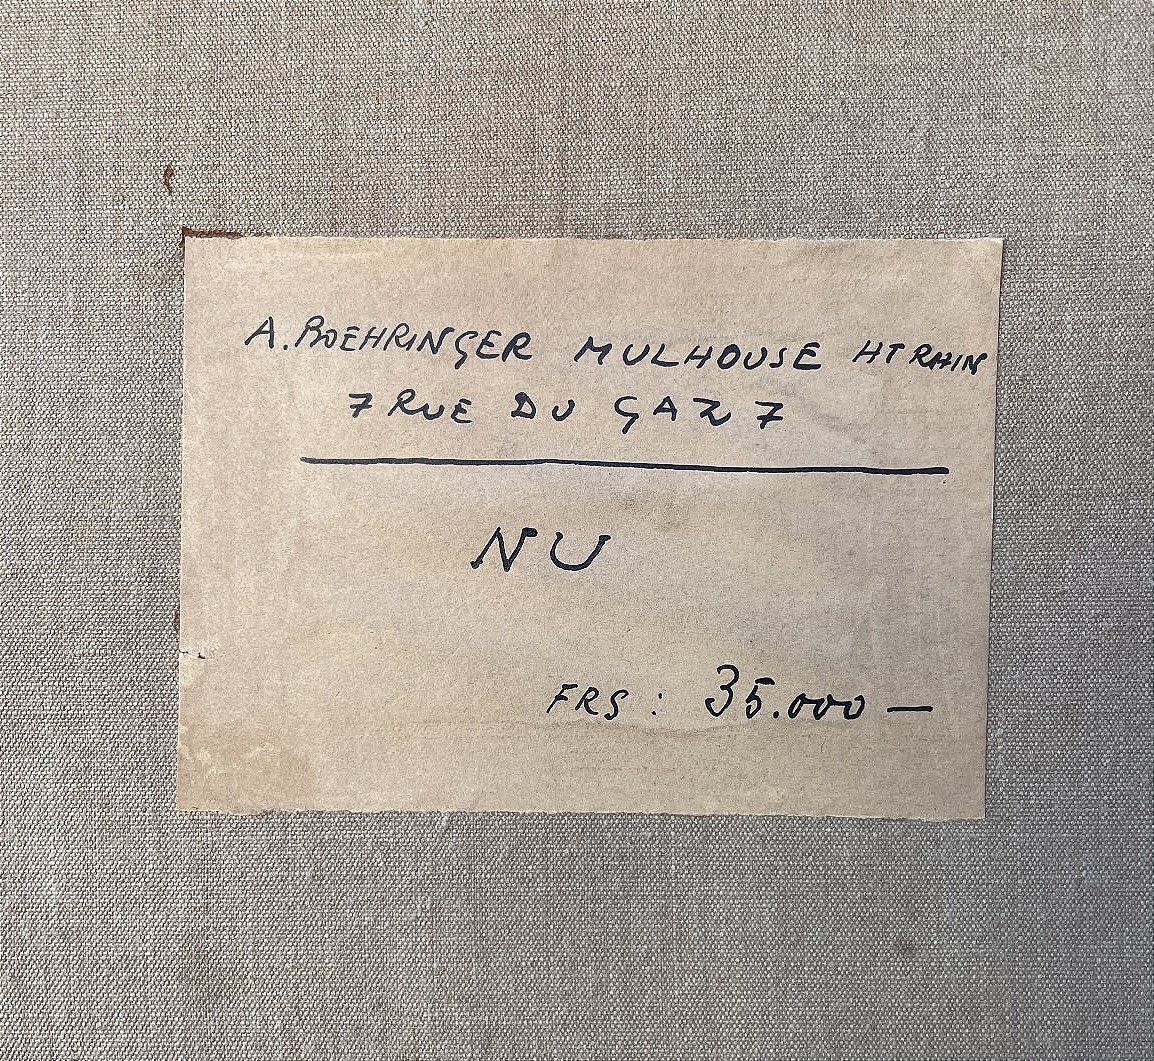 A. BOEHRINGER MULHOUSE HT RHIN
7 RUE DU GAZ 7
NU
FRS : 35.000 —